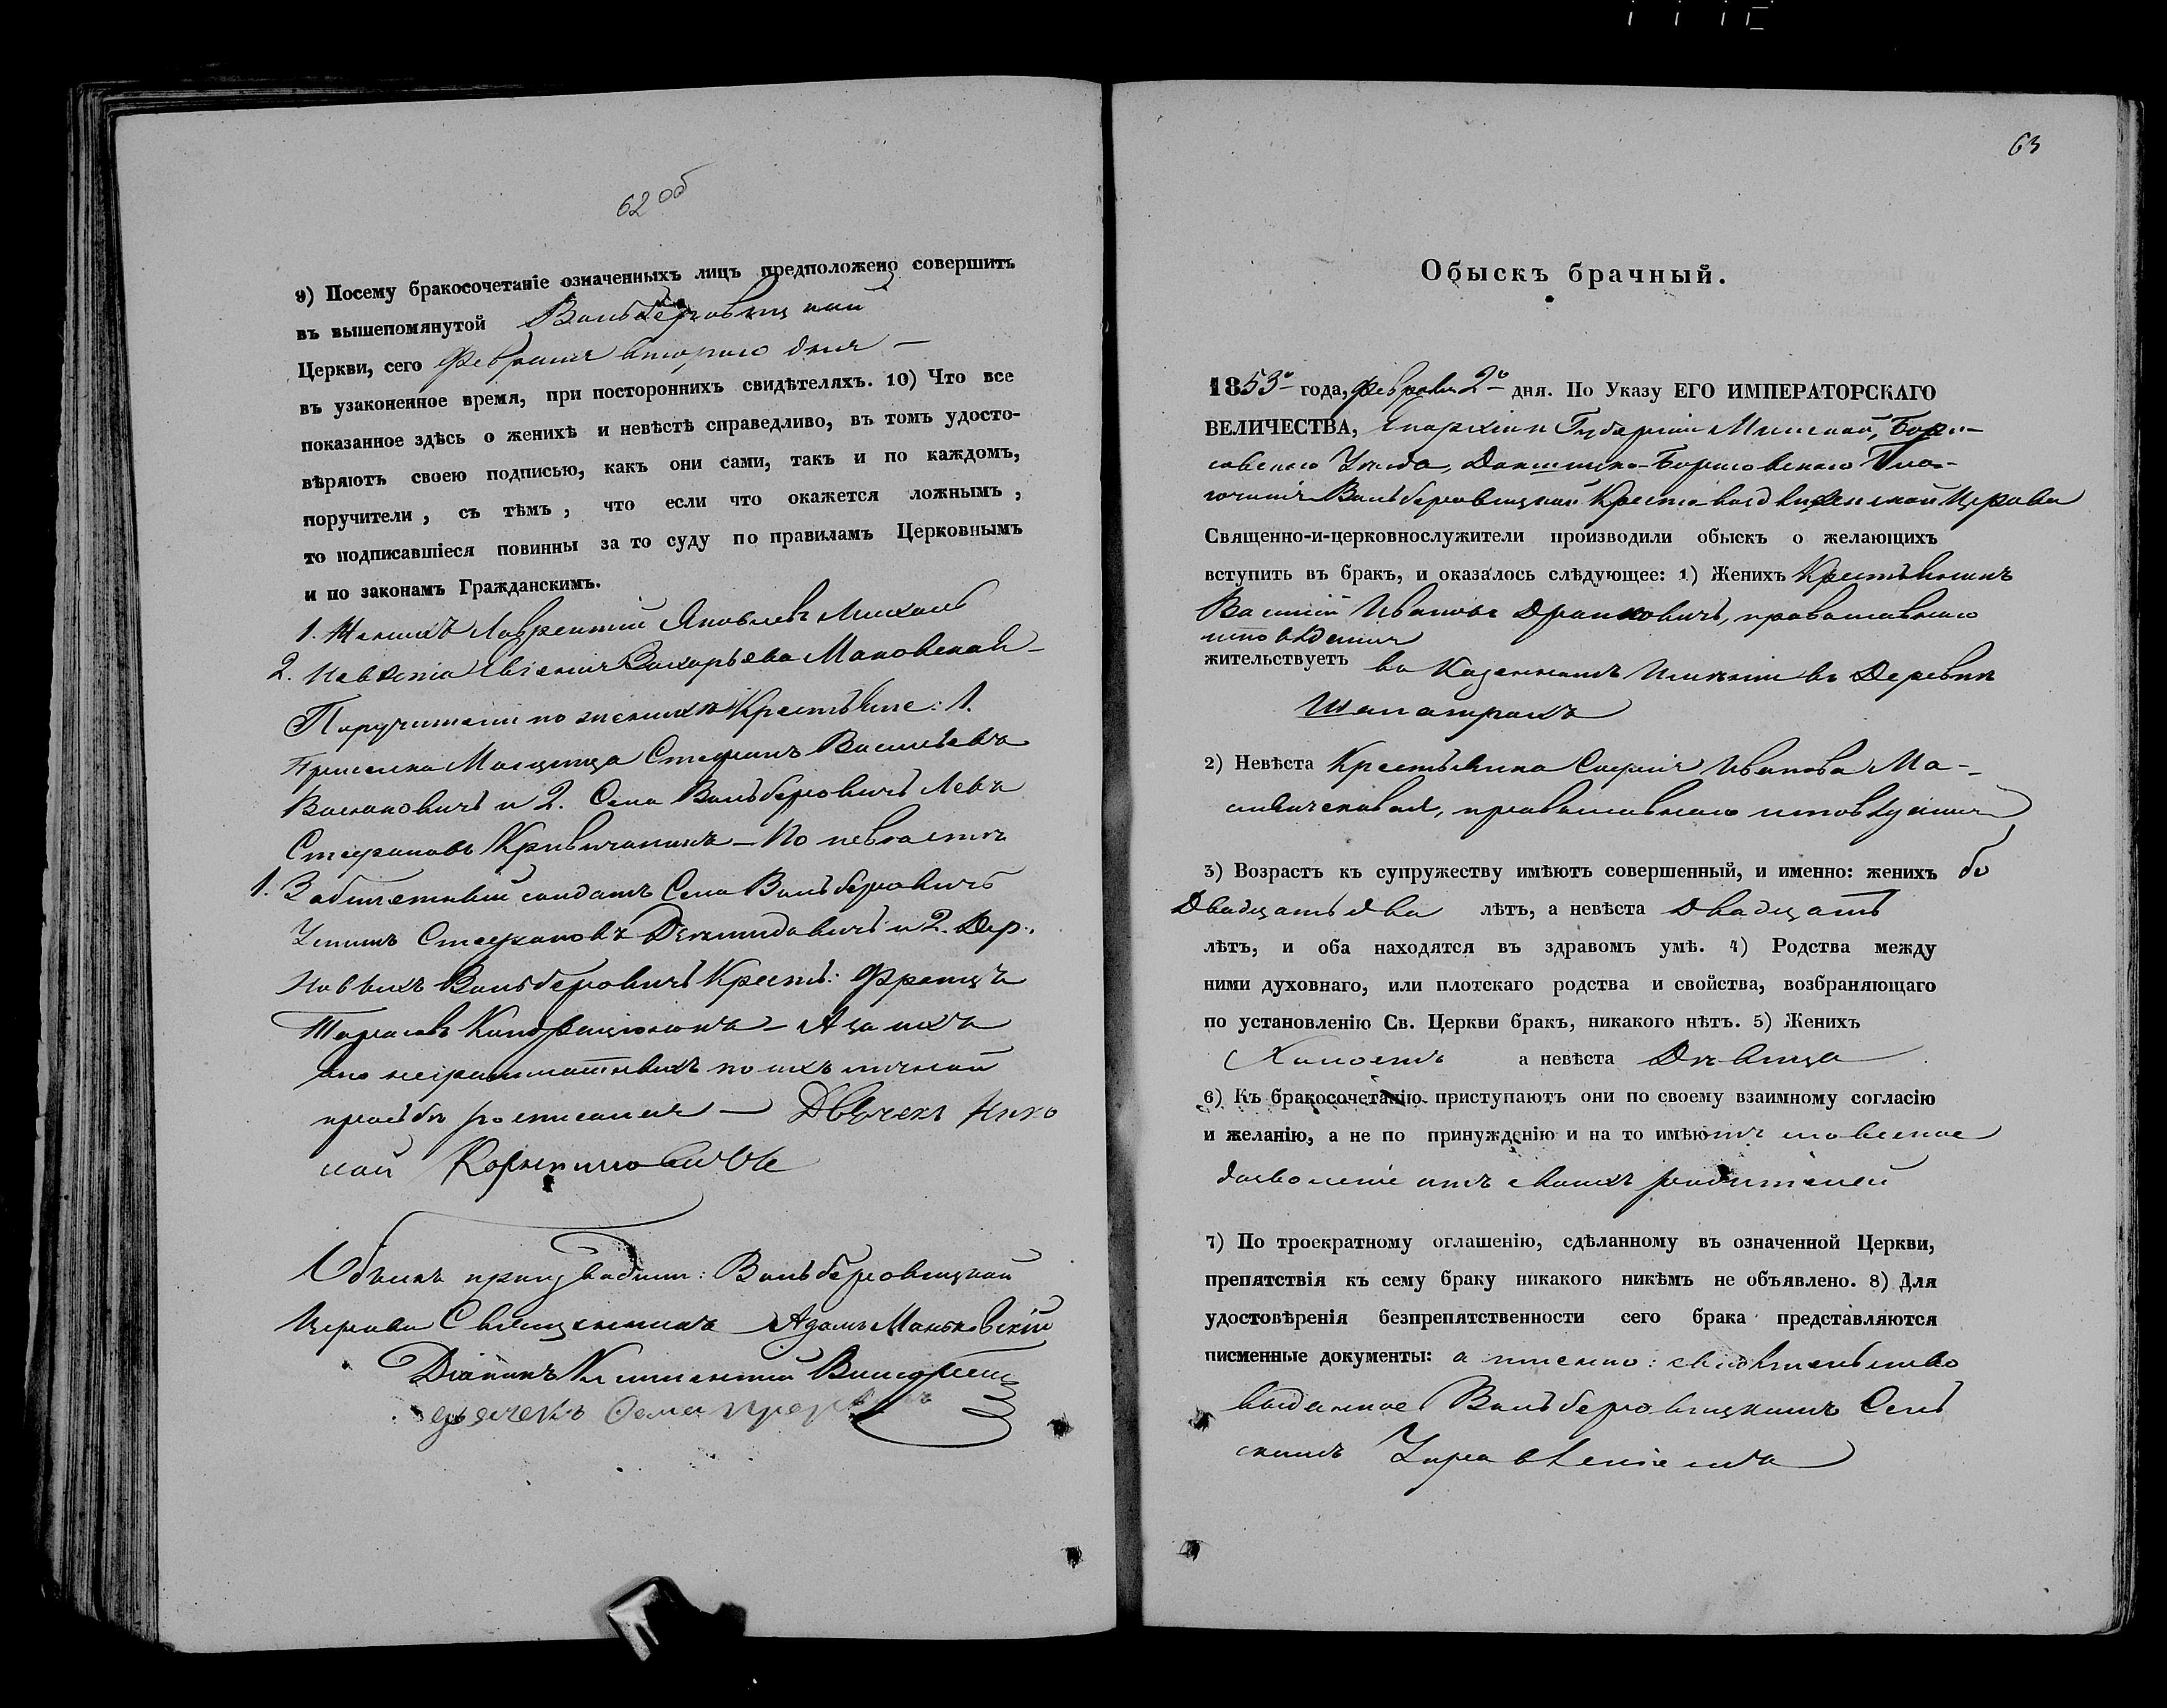 62 об
9) Посему бракосочетаніе означенныхъ лицъ предположено совершить
въ вышепомянутой Вольберовицкой
Церкви, сего Февраля втораго дня —
въ узаконенное время, при постороннихъ свидѣтеляхъ. 10) Что все
показанное здѣсь о женихѣ и невѣстѣ справедливо, въ томъ удосто-
вѣряютъ своею подписью, какъ они сами, такъ и по каждомъ,
поручители, съ тѣмъ, что если что окажется ложнымъ,
то подписавшіеся повинны за то суду по правиламъ Церковнымъ
и по законамъ Гражданскимъ.
1. Женихъ Лаврентій Яковлевъ Михаль
2. Невѣста Евгенія Захарьева Маковская —
Поручители по женихѣ Крестьяне: 1.
Стефанъ Васильевъ
и 2. Села Вольберовичъ Левъ
Стефановъ Кривичанинъ — По невѣстѣ
1. Забилетный солдатъ Села Вольберовичъ
Стефановъ Демидовичъ и 2. Дер.
Новыхъ Вольберовичъ Крест: Францъ
Тарасовъ — А за ихъ
по ихъ личной
прозьбѣ росписался — Дьячекъ Нико
лай
Обыскъ производили: Вольберовицкой
Церкви Священникъ Адамъ Маньковскій
Діаконъ Климентій
дьячекъ
63
Обыскъ брачный.
1853го года, Февраля 2го дня. По Указу ЕГО ИМПЕРАТОРСКАГО
ВЕЛИЧЕСТВА, Епархіи и Губерніи Минской, Бори-
совскаго Уѣзда, Докшицко-Борисовскаго Бла-
гочинія Вольберовицкой Крестовоздвиженской Церкви
Священно-и-церковнослужители производили обыскъ о желающихъ
вступить въ бракъ, и оказалось слѣдующее: 1) Женихъ Крестьянинъ
Василій Ивановъ Драпковичъ, православнаго
исповѣданія
жительствуетъ въ Казенномъ Имѣніи въ Деревнѣ
2) Невѣста Крестьянка Софія Иванова Ма-
православнаго исповѣданія
3) Возрастъ къ супружеству имѣютъ совершенный, и именно: женихъ
Двадцать два лѣтъ, а невѣста Двадцать
лѣтъ, и оба находятся въ здравомъ умѣ. 4) Родства между
ними духовнаго, или плотскаго родства и свойства, возбраняющаго
по установленію Св. Церкви бракъ, никакого нѣтъ. 5) Женихъ
Холостъ а невѣста Дѣвица
6) Къ бракосочетанію приступаютъ они по своему взаимному согласію
и желанію, а не по принужденію и на то имѣютъ словесное
дозволеніе отъ своихъ родителей
7) По троекратному оглашенію, сдѣланному въ означенной Церкви,
препятствія къ сему браку никакого никѣмъ не объявлено. 8) Для
удостовѣренія безпрепятственности сего брака представляются
писменные документы: а именно: свидѣтельство
выданное Вольберовицкимъ Сель
скимъ Управленіемъ